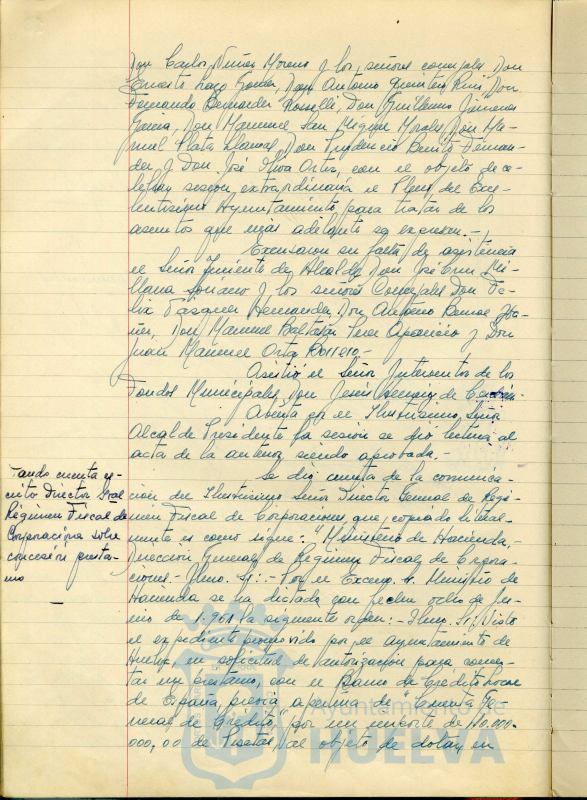 Don Carlos Núñez Moreno y los señores concejales Don
Ernesto Lazo Don Antonio Don
Fernando Bernardez Rosselli, Don Guillermo Jimenez
Garcia, Don Manuel San Miguel Morales, Don Ma-
nuel Plata Don Prudencio Benito
y Don José Ortiz, con el objeto de ce-
lebrar sesión extraordinaria el Pleno del Exce-
lentísimo Ayuntamiento para tratar de los
asuntos que más adelante se expresan.-
Excusaron su falta de asistencia
el Señor Teniente de Alcalde Don José
Soriano y los señores Concejales Don Fe-
lix Vázquez Hernandez, Don Antonio
Don Manuel Baltasar Pera Aparicio y Don
Juan Manuel Orta Borrero.-
Asistió el Señor Interventor de los
Fondos Municipales, Don Jesús de
Abierta por el Ilustrísimo Señor
Alcalde Presidente la sesión se dió lectura al
acta de la anterior siendo aprobada.-
Dando cuenta es-
crito Director Gral
Régimen Fiscal de
Corporacións sobre
concesión présta-
mo
Se dió cuenta de la comunica-
ción del Ilustrísimo Señor Director General de Régi-
men Fiscal de Corporaciones que, copiado literal-
mente es como sigue: "Ministerio de Hacienda.-
Dirección General de Régimen Fiscal de Corpora-
ciones.- Ilmo. Sr:- Por el Excmo. Sr. Ministro de
Hacienda se ha dictado con fecha ocho de Ju-
nio de 1.961 la siguiente orden:- Ilmo. Sr: Visto
el expediente promovido por el ayuntamiento de
Huelva en solicitud de autorización para concer-
tar un préstamo, con el Banco de Crédito Local
de España, previa apertura de "Cuenta Ge-
neral de Crédito" por un importe de 10.000.
000,00 de Pesetas, al objeto de dotar en
Ayuntamiento de
HUELVA